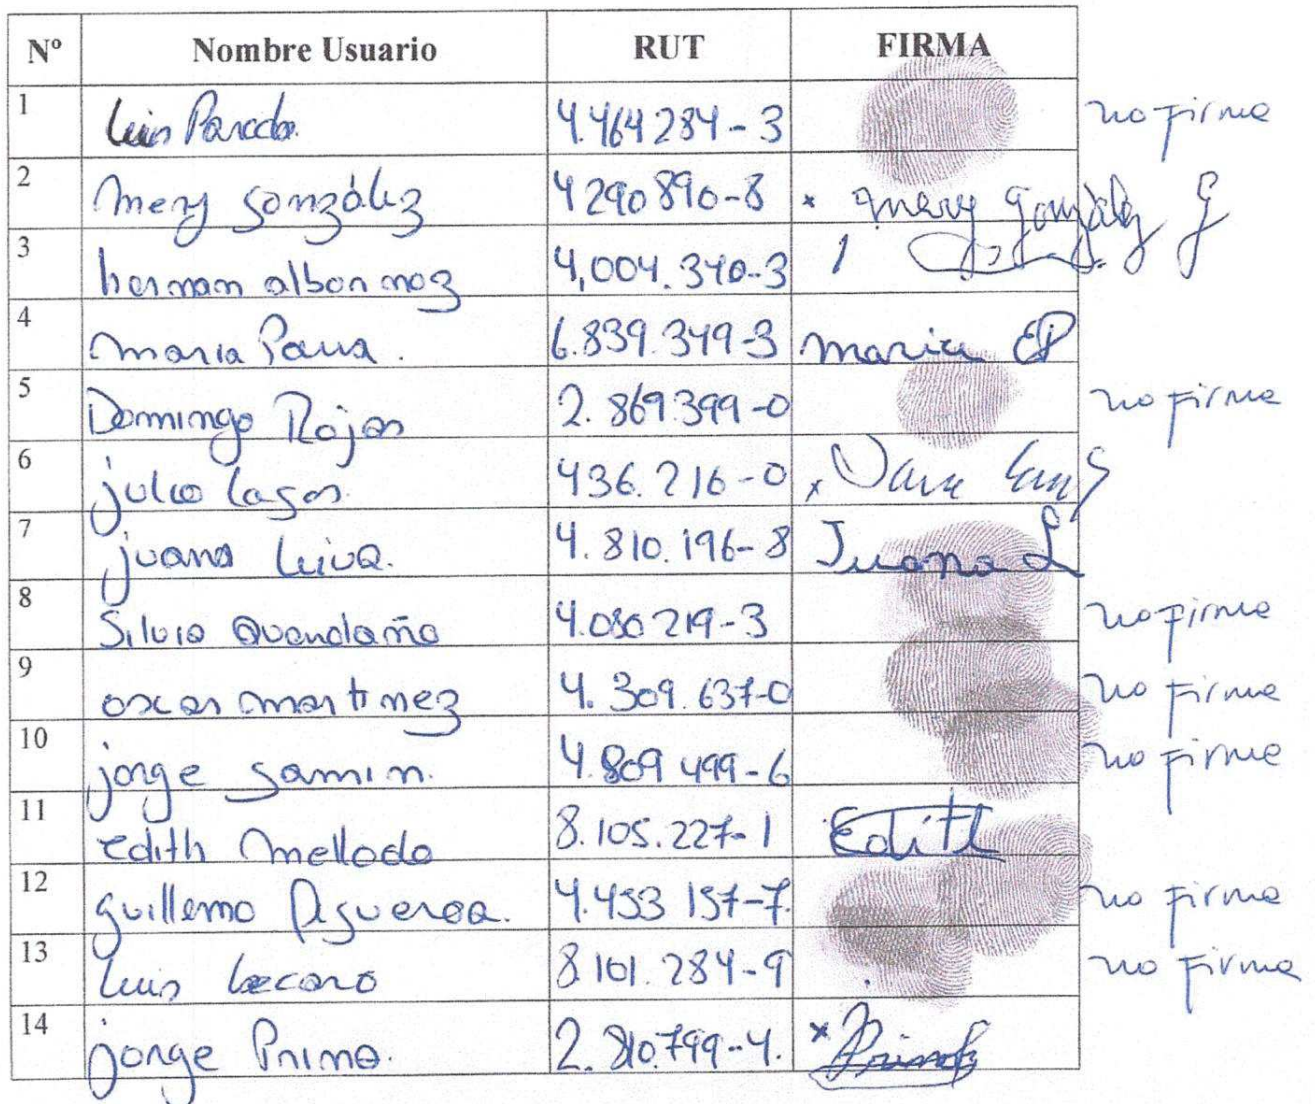 Nº Nombre Usuario RUT FIRMA
1 Luis Parada. 4.464284-3 no firma
2 Mery González 4290890-8 x Mery González G
3 herman albornnoz 4,004.340-3
4 Maria Parra. 6.839.349-3 Maria EP
5 Domingo Rojas 2.869.399-0 no firma
6 julio Lagos. 436.216-0 x
7 juana Leiva. 4.810.196-8 Juana L
8 Silvia Avendaño 4.080219-3 no firma
9 oscar Martinez 4.309.637-0 no firma
10 jorge 4.809499-6 no firma
11 edith Mellado 8.105.227-1 Edith
12 guillermo Figueroa. 4.453157-7. no firma
13 Luis 8.101.284-9 no firma
14 jorge Primo. 2.810.799-4. x